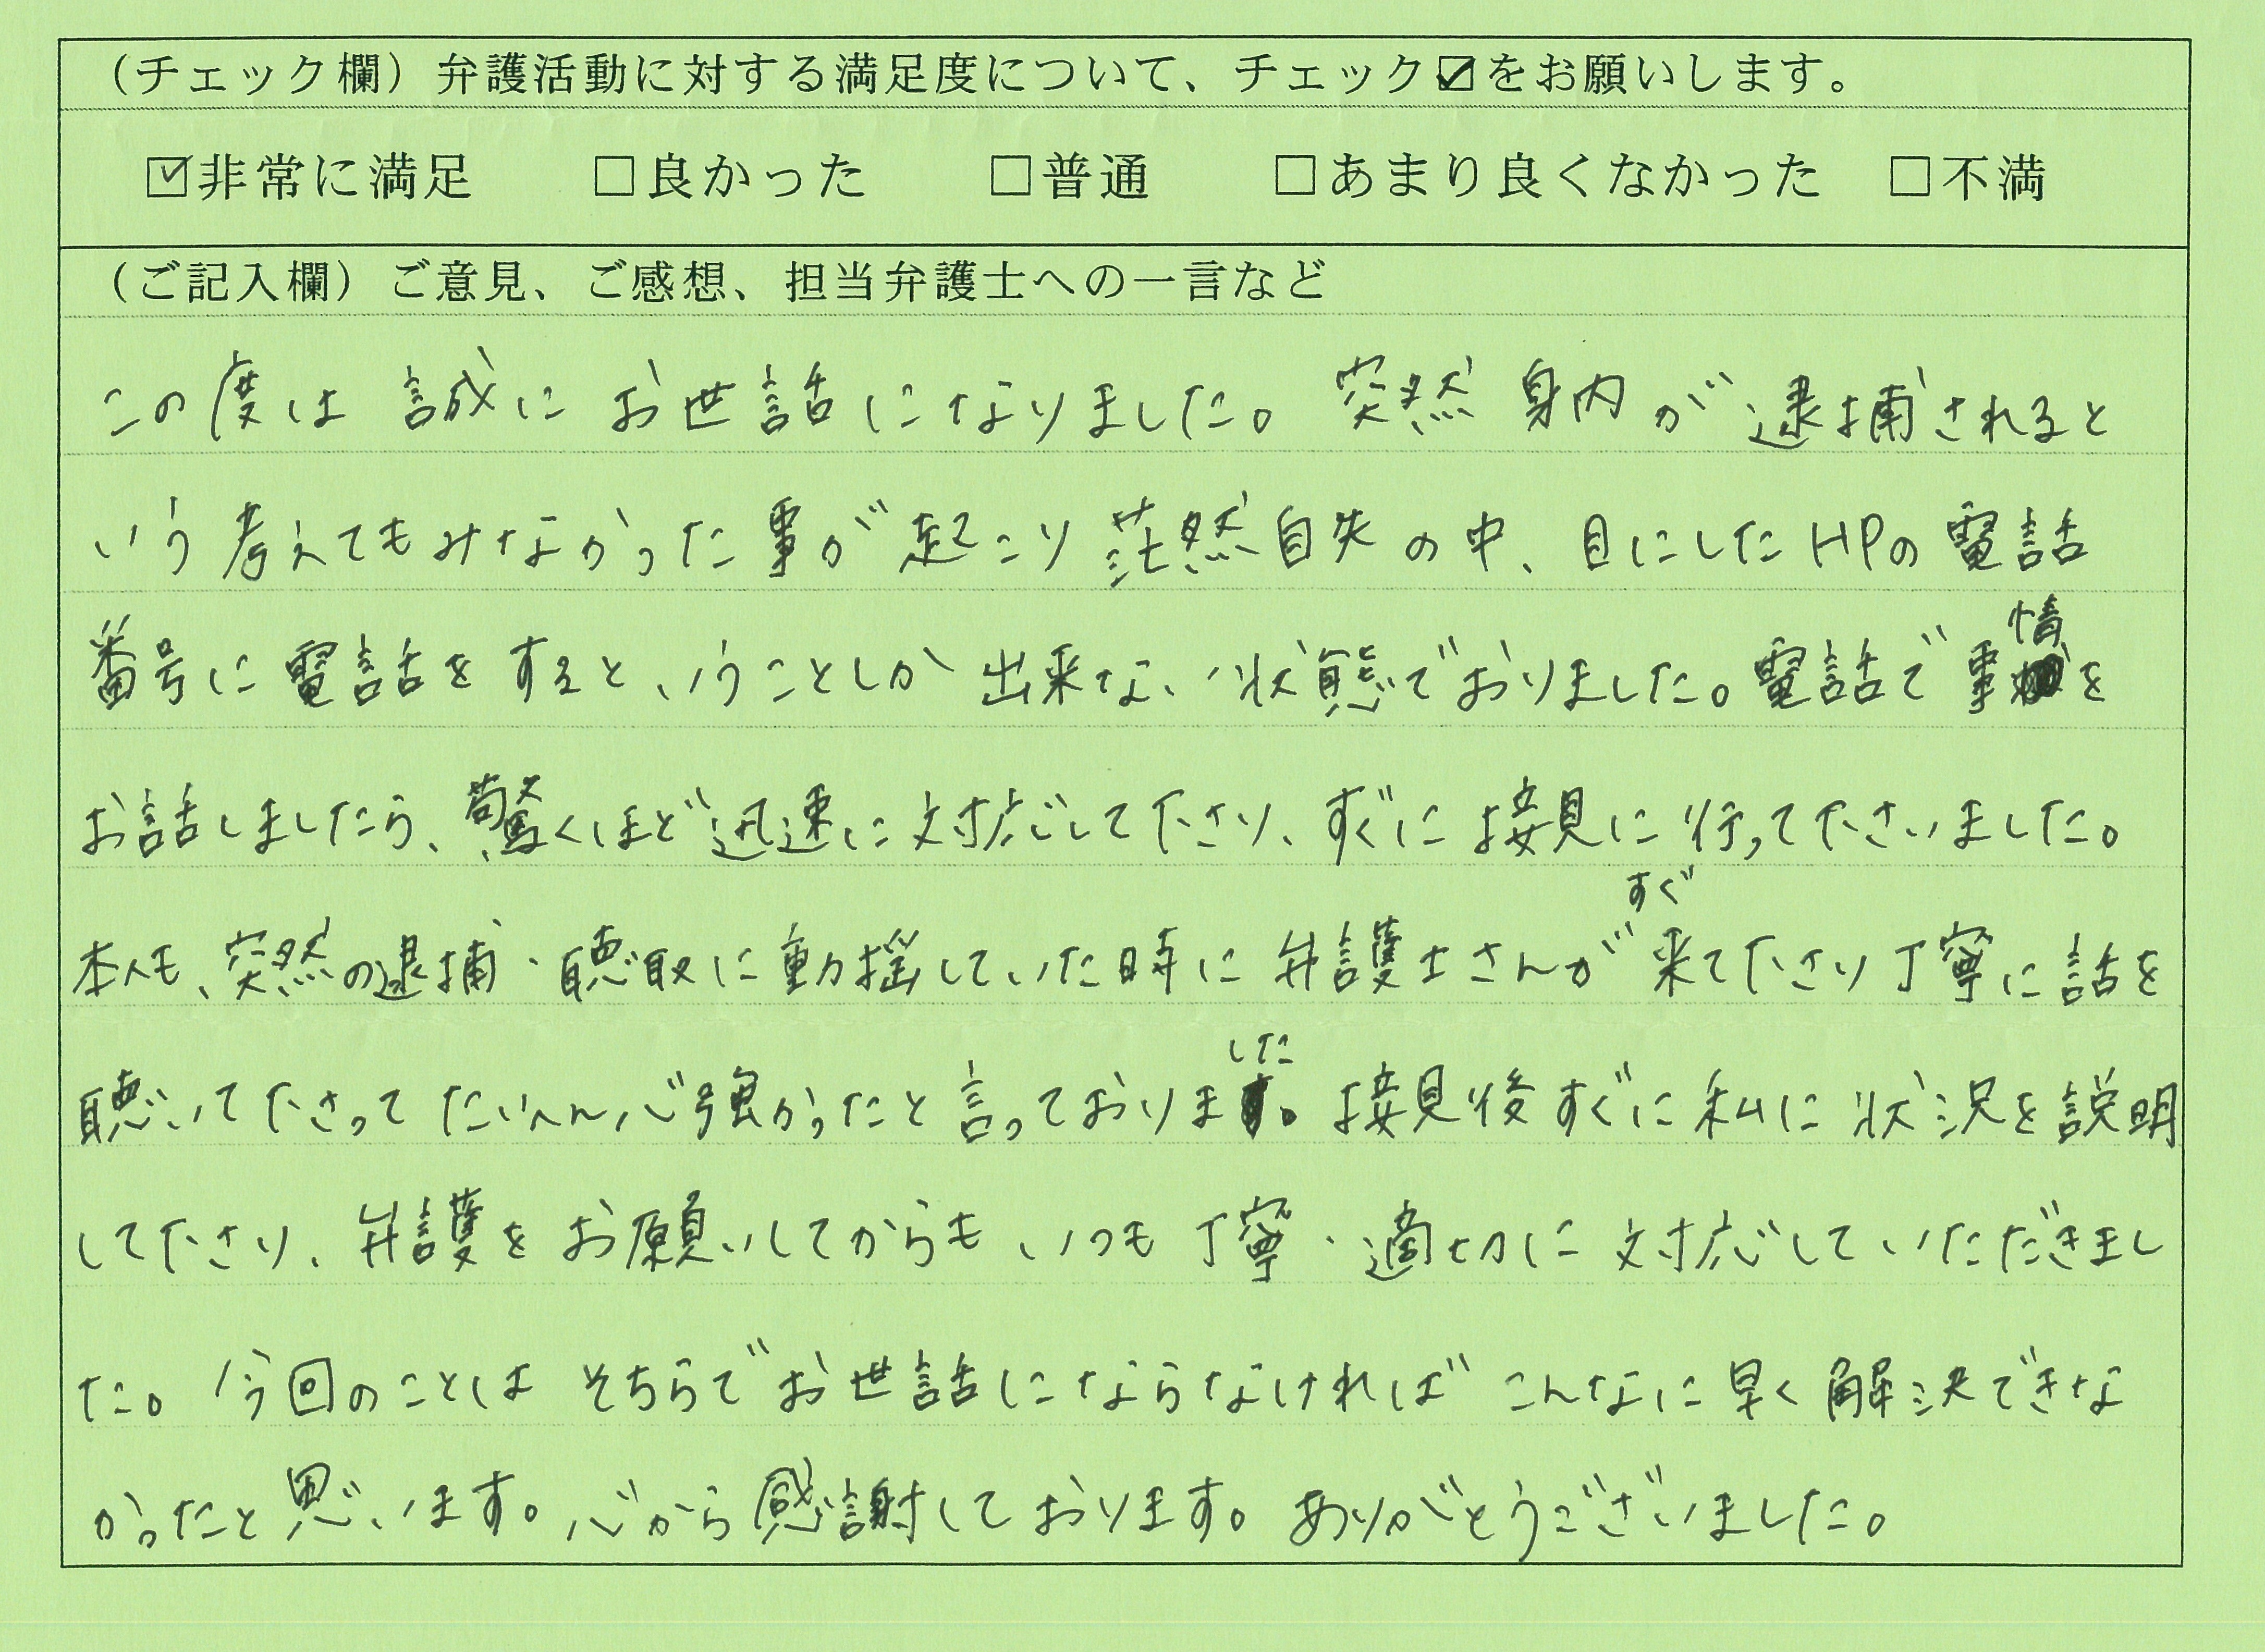 （チェック欄）弁護活動に対する満足度について、チェック☑をお願いします。
☑非常に満足 □良かった □普通 □あまり良くなかった □不満
（ご記入欄）ご意見、ご感想、担当弁護士への一言など
この度は誠にお世話になりました。突然身内が逮捕されると
いう考えてもみなかった事が起こり茫然自失の中、目にしたHPの電話
番号に電話をするということしか出来ない状態でおりました。電話で事情を
お話しましたら、驚くほど迅速に対応して下さり、すぐに接見に行って下さいました。
本人も、突然の逮捕・聴取に動揺していた時に弁護士さんがすぐ来て下さり丁寧に話を
聴いて下さってたいへん心強かったと言っておりました。接見後すぐに私に状況を説明
して下さり、弁護をお願いしてからもいつも丁寧・適切に対応していただきまし
た。今回のことはそちらでお世話にならなければこんなに早く解決できな
かったと思います。心から感謝しております。ありがとうございました。